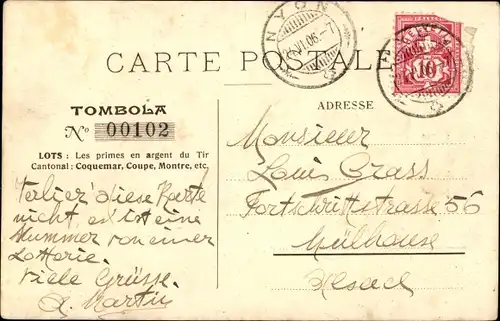 NYON
VI.06.-7
CARTE POSTALE
HELVETIA
FRANCO
10
TOMBOLA
No 00102
LOTS : Les primes en argent du Tir
Cantonal: Coquemar, Coupe, Montre, etc.
diese Karte
nicht es ist eine
Nummer von einer
Lotterie.
Viele Grüsse.
A. Martin
ADRESSE
Monsieur
Louis Grass
Fortschrittstrasse 56
Mülhouse
Alsace